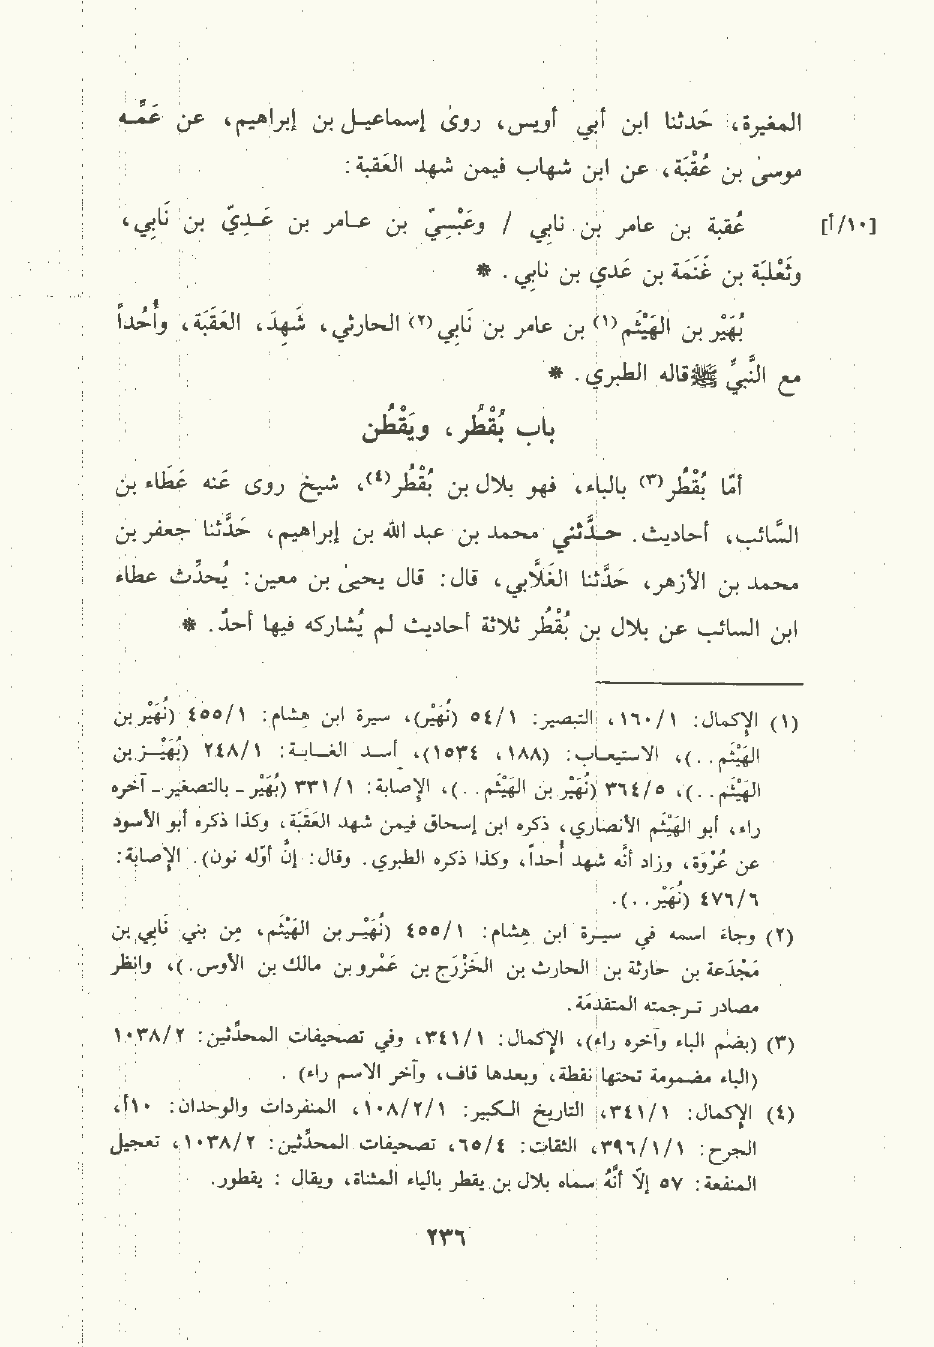 المغيرة، حَدثنا ابن أبي أويس، روىٰ إسماعيل بن إبراهيم، عن عَمِّه
موسىٰ بن عُقْبَة، عن ابن شهاب فيمن شهد العَقبة:
[١٠/أ] عُقبة بن عامر بن نابي / وعَبْسِيّ بن عامر بن عَدِيّ بن نَابِي،
وثَعْلبَة بن غَنَمَة بن عَدي بن نابِي. *
بُهَيْر بن الهَيْثَم(١) بن عامر بن نَابي(٢) الحارثي، شَهِدَ، العَقَبَة، وأُحُداً
مع النَّبيِّ ﷺ قاله الطبري. *
باب بُقْطُر، ويَقْطُن
أمّا بُقْطُر(٣) بالباء، فهو بلال بن بُقْطُر(٤)، شيخ روى عَنه عَطَاء بن
السَّائب، أحاديث. حدَّثني محمد بن عبد الله بن إبراهيم، حَدَّثنا جعفر بن
محمد بن الأزهر، حَدَّثنا الغَلَّابي، قال: قال يحيىٰ بن معين: يُحدِّث عطاء
ابن السائب عن بلال بن بُقْطُر ثلاثة أحاديث لم يُشاركه فيها أحدٌ. *
(١) الإكمال: ١/١٦٠، التبصير: ١/٥٤ (نُهَيْر)، سيرة ابن هشام: ١/٤٥٥ (نُهَيْر بن
الهَيْثَم..)، الاستيعاب: (١٨٨، ١٥٣٤)، أسد الغابة: ١/٢٤٨ (بُهَيْز بن
الهَيْثَم..)، ٥/٣٦٤ (نُهَيْر بن الهَيْثَم..)، الإصابة: ١/٣٣١ (بُهَيْر - بالتصغير - آخره
راء، أبو الهَيْثم الأنصاري، ذكره ابن إسحاق فيمن شهد العَقَبَة، وكذا ذكره أبو الأسود
عن عُرْوَة، وزاد أنَّه شهد أُحداً، وكذا ذكره الطبري. وقال: إنَّ أوّله نون). الإصابة:
٦/٤٧٦ (نُهَيْر..).
(٢) وجاءَ اسمه في سيرة ابن هِشام: ١/٤٥٥ (نُهَيْر بن الهَيْثَم، مِن بني نَابي بن
مَجْدَعة بن حارثة بن الحارث بن الخَزْرَج بن عَمْرو بن مالك بن الأوس.)، وانظر
مصادر ترجمته المتقدّمَة.
(٣) (بضم الباء وآخره راء)، الإكمال: ١/٣٤١، وفي تصحيفات المحدِّثين: ٢/١٠٣٨
(الباء مضمومة تحتها نقطة، وبعدها قاف، وآخر الاسم راء) .
(٤) الإكمال: ١/٣٤١، التاريخ الكبير: ١/٢/١٠٨، المنفردات والوحدان: ١٠أ،
الجرح: ١/١/٣٩٦، الثقات: ٤/٦٥، تصحيفات المحدِّثين: ٢/١٠٣٨، تعجيل
المنفعة: ٥٧ إلّا أنَّهُ سماه بلال بن يقطر بالياء المثناة، ويقال : يقطور.
٢٣٦